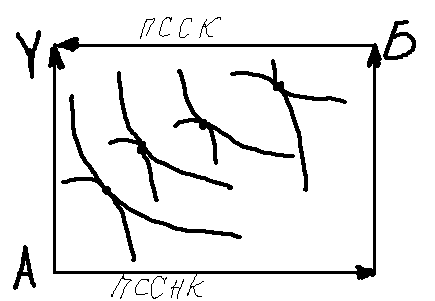 ПССК
У Б
А
ПССНК